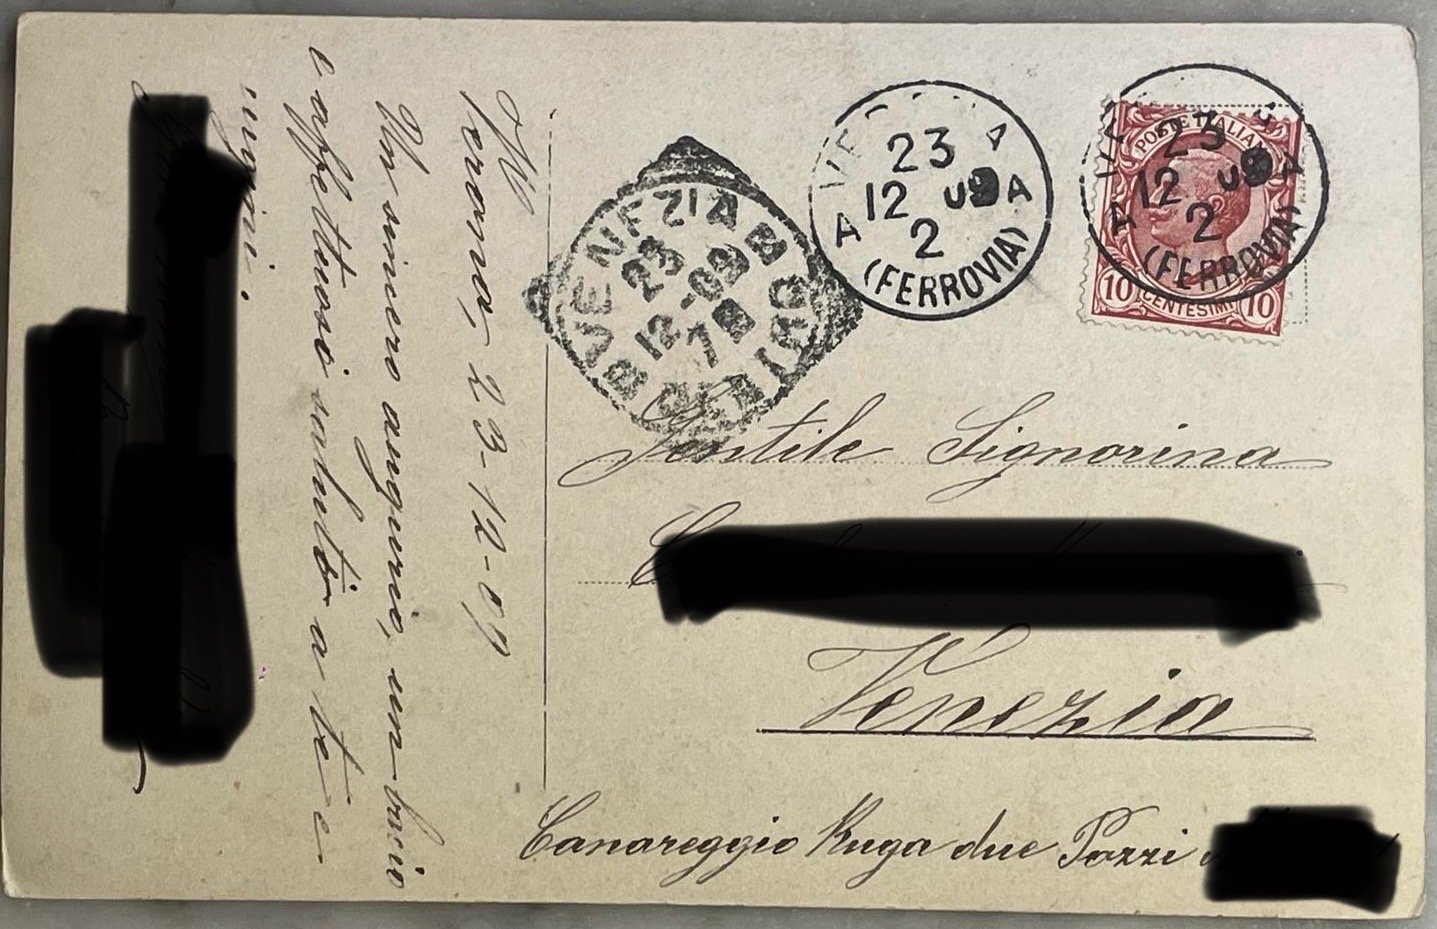 Verona, 23-12-09
Un sincero augurio, un bacio
e affettuosi saluti a te e
VENEZIA
CENTRO
23
12-09
7
VERONA
23
12 09
2
A A
(FERROVIA)
POSTE ITALIANE
23
12 09
2
A A
(FERROVIA)
10 CENTESIMI 10
Gentile Signorina
Venezia
Canareggio Ruga due Pozzi